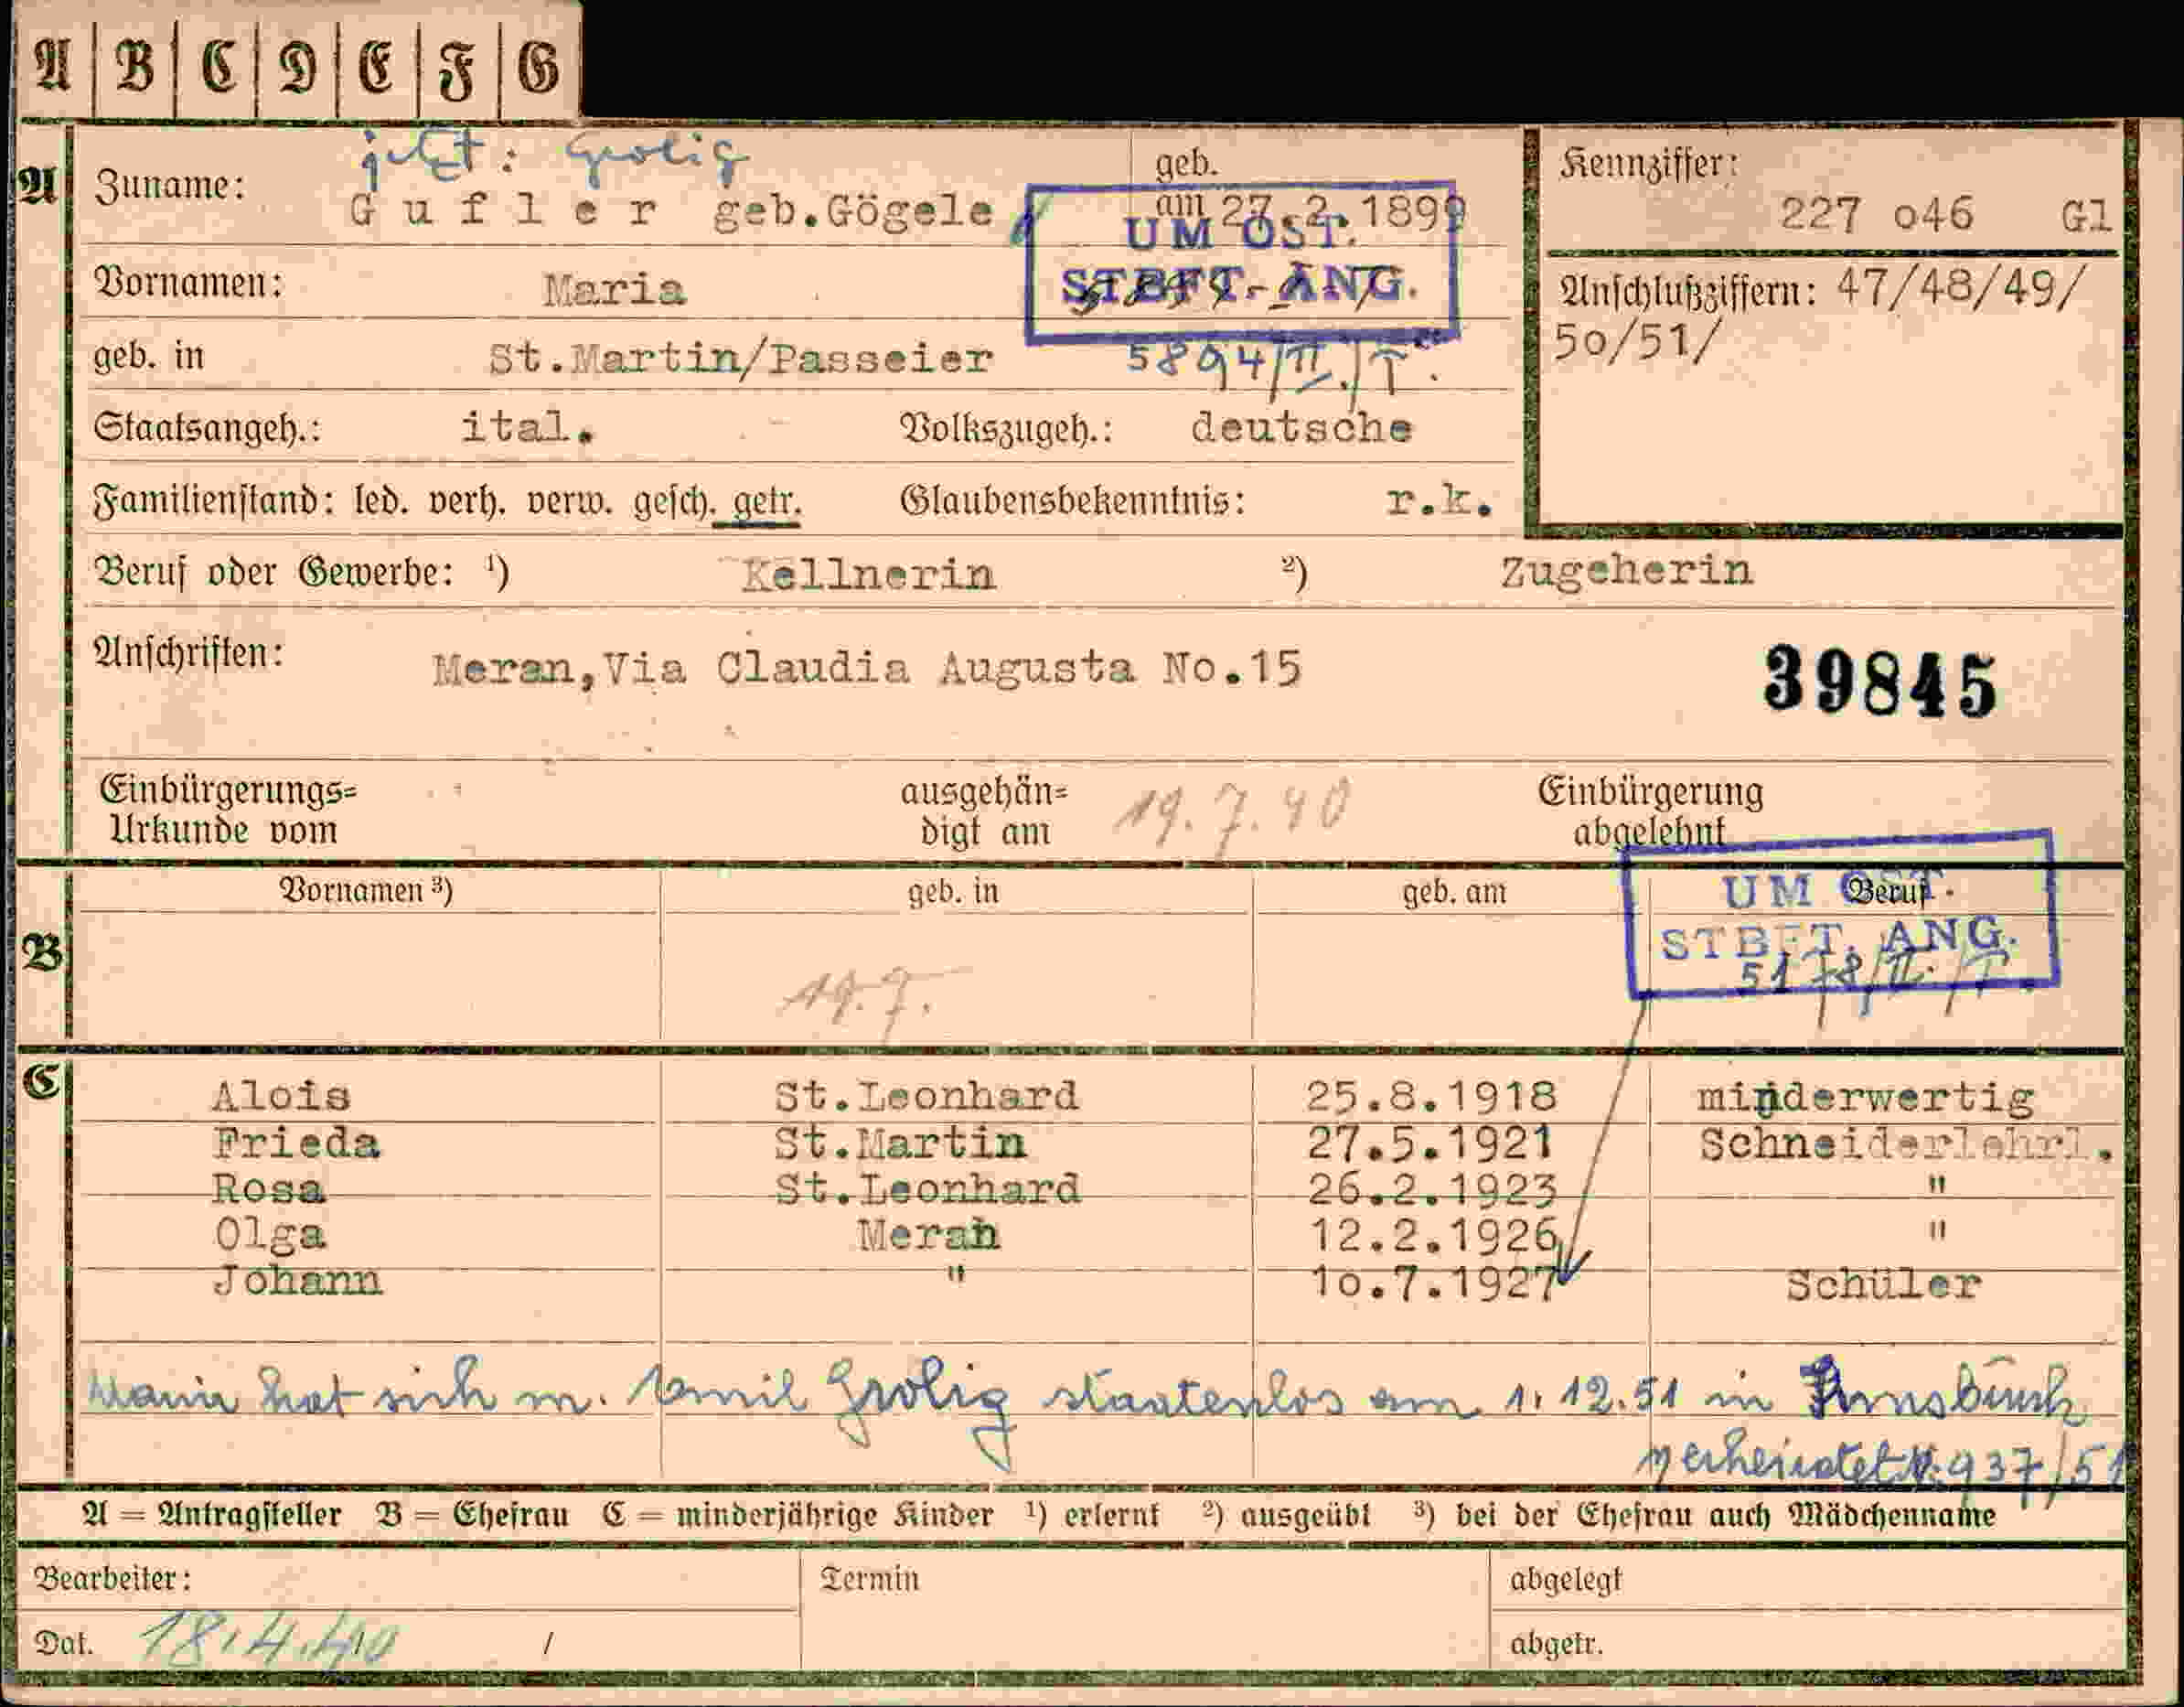 A B C D E F G
jetzt: Grolig
A Zuname: Gufler geb.Gögele geb. am 27.2.1899
Kennziffer: 227 o46 Gl
UM OST.
STBFT.-ANG.
Vornamen: Maria
Anschlußziffern: 47/48/49/
50/51/
geb. in St.Martin/Passeier 5894/II./T.
Staatsangeh.: ital. Volkszugeh.: deutsche
Familienstand: led. verh. verw. gesch. getr. Glaubensbekenntnis: r.k.
Beruf oder Gewerbe: 1) Kellnerin 2) Zugeherin
Anschriften: Meran,Via Claudia Augusta No.15
39845
Einbürgerungs=
Urkunde vom
ausgehän=
digt am 19.7.40
Einbürgerung
abgelehnt
B Vornamen 3) geb. in geb. am Beruf
UM OST.
STBFT. ANG.
5178/II./T.
19.7.
C Alois St.Leonhard 25.8.1918 minderwertig
Frieda St.Martin 27.5.1921 Schneiderlehrl.
Rosa St.Leonhard 26.2.1923 "
Olga Meran 12.2.1926 "
Johann " 1o.7.1927 Schüler
hat sich m. Emil Grolig staatenlos am 1.12.51 in Innsbruck
verheiratet N. 937/51
A = Antragsteller B = Ehefrau C = minderjährige Kinder 1) erlernt 2) ausgeübt 3) bei der Ehefrau auch Mädchenname
Bearbeiter: Termin abgelegt
Dat. 18.4.40 / abgetr.